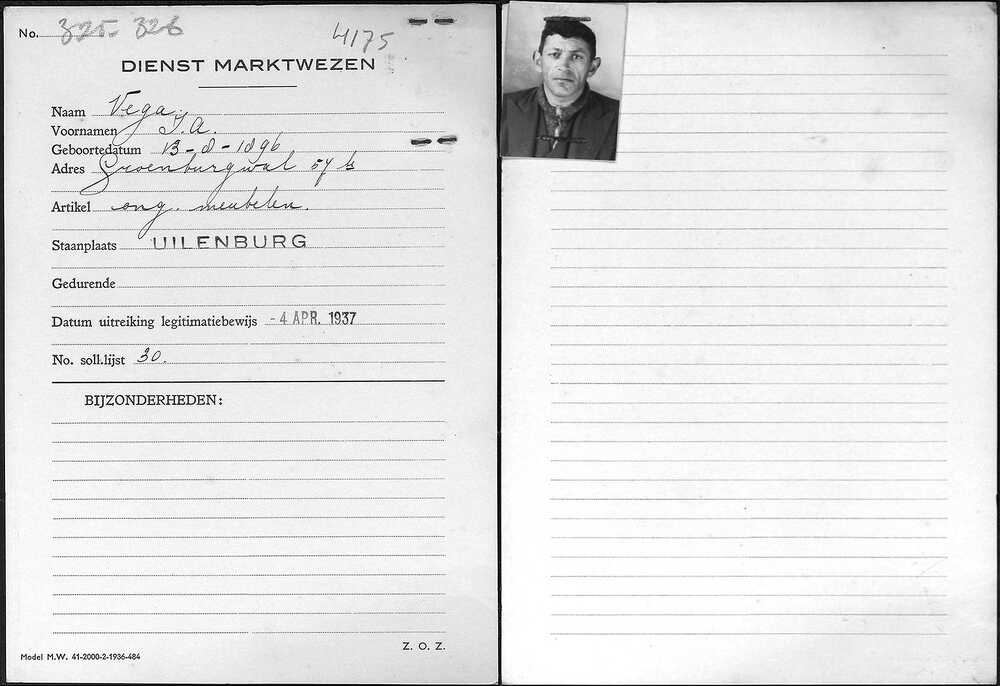 No. 325-326
4175
DIENST MARKTWEZEN
Naam Vega
Voornamen J.A.
Geboortedatum 13-8-1896
Adres Groenburgwal 57 h
Artikel ong. meubelen.
Staanplaats UILENBURG
Gedurende
Datum uitreiking legitimatiebewijs -4 APR. 1937
No. soll.lijst 30.
BIJZONDERHEDEN:
Z. O. Z.
Model M.W. 41-2000-2-1936-484